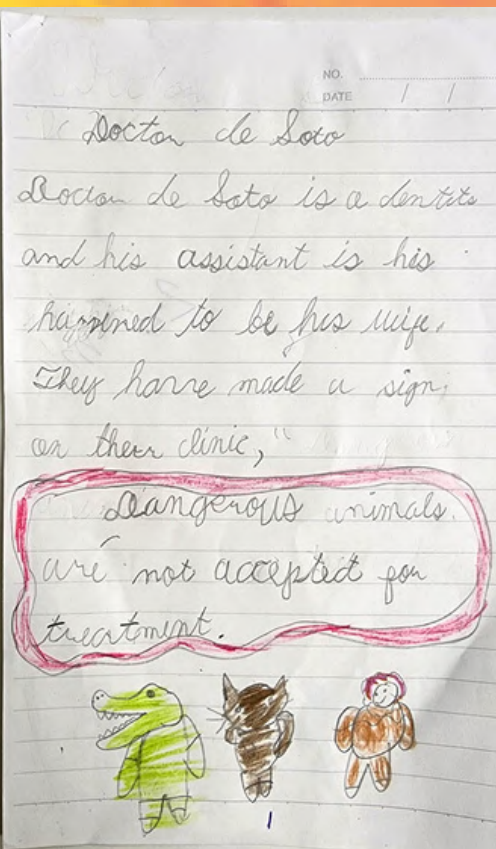 NO.
DATE / /
Doctor de Soto
Doctor de Soto is a dentits
and his assistant is his
happined to be his wife.
They have made a sign
on their clinic,"
Dangerous animals.
are not accepted for
treatment.
1